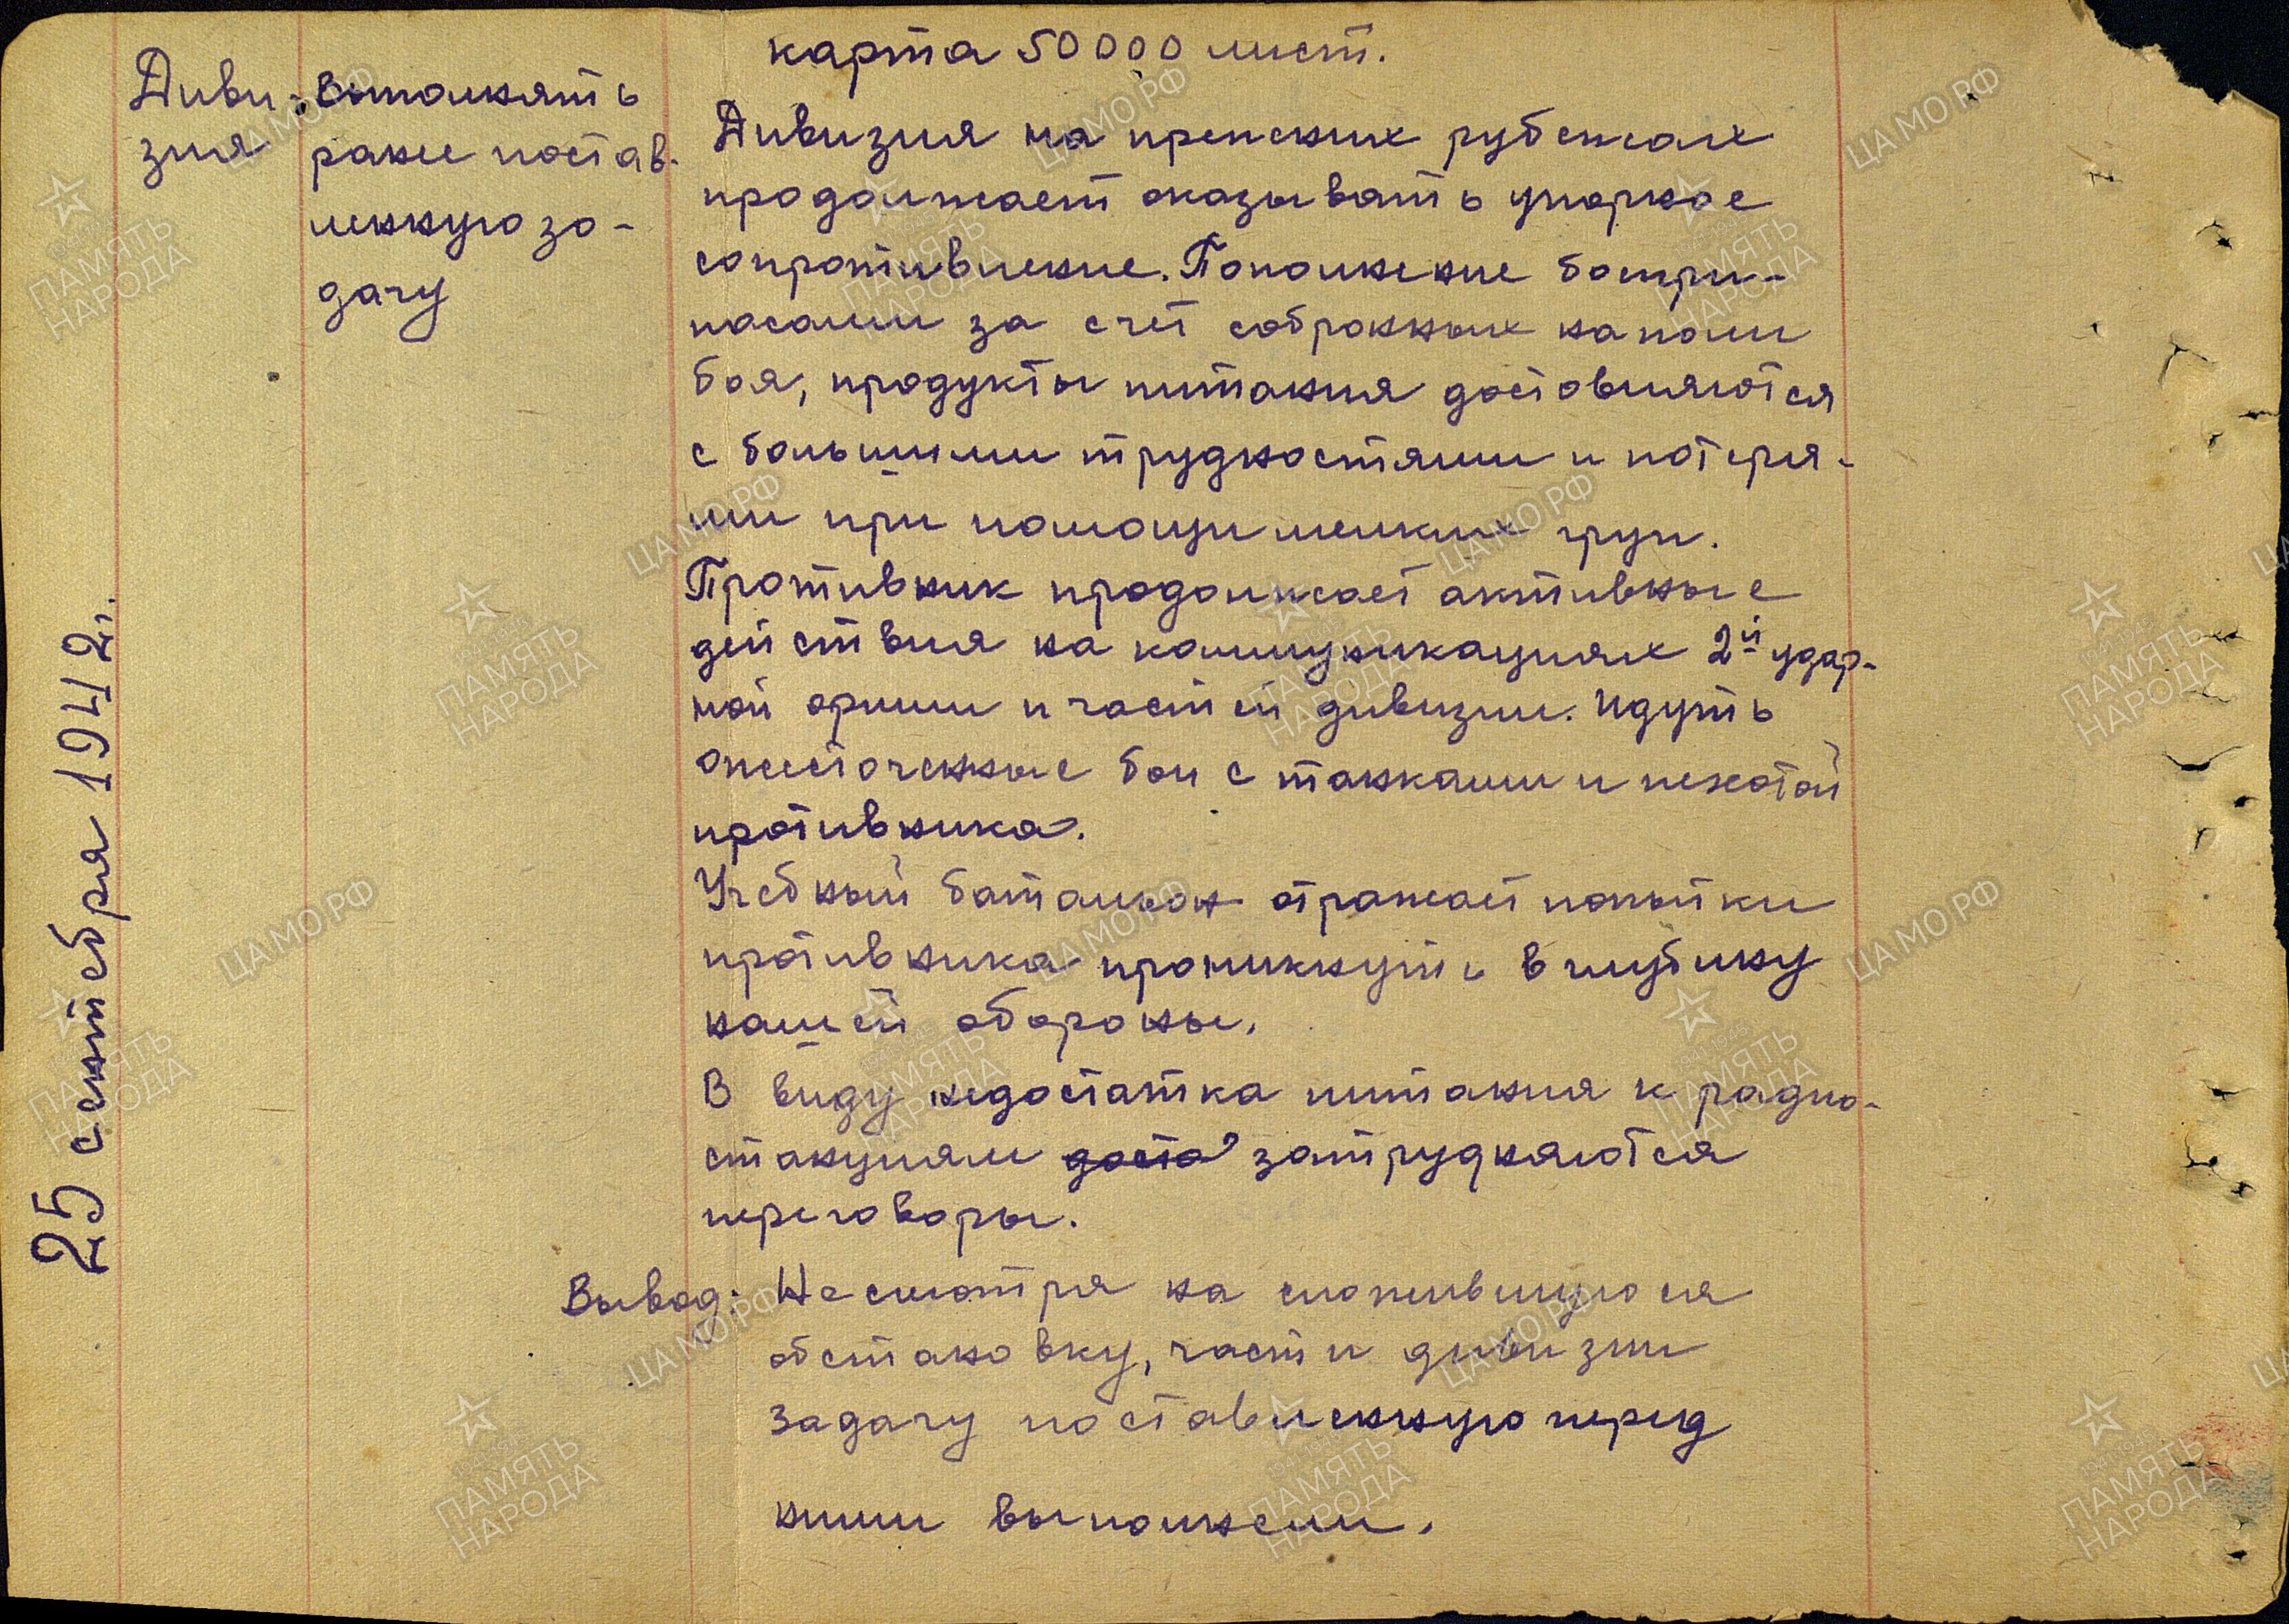 25 сентября 1942 г.
Диви-
зия
Выполнять
ранее постав-
ленную за-
дачу
карта 50 000 лист.
Дивизия на прежних рубежах
продолжает оказывать упорное
сопротивление. Пополнение боепри-
пасами за счет собранных на поли
боя, продукты питания доставляются
с большими трудностями и потеря-
ми при помощи мелких груп.
Противник продолжает активные
действия на коммуникациях 2й удар-
ной армии и частей дивизии. Идуть
ожесточенные бои с танками и пехотой
противника.
Учебный батальон отражает попытки
противника проникнуть в глубину
нашей обороны.
В виду недостатка питания к радио-
станциям доста затрудняются
переговоры.
Вывод: Несмотря на сложившуюся
обстановку, части дивизии
задачу поставленную перед
ними выполнили.
ЦАМО РФ
ПАМЯТЬ
НАРОДА